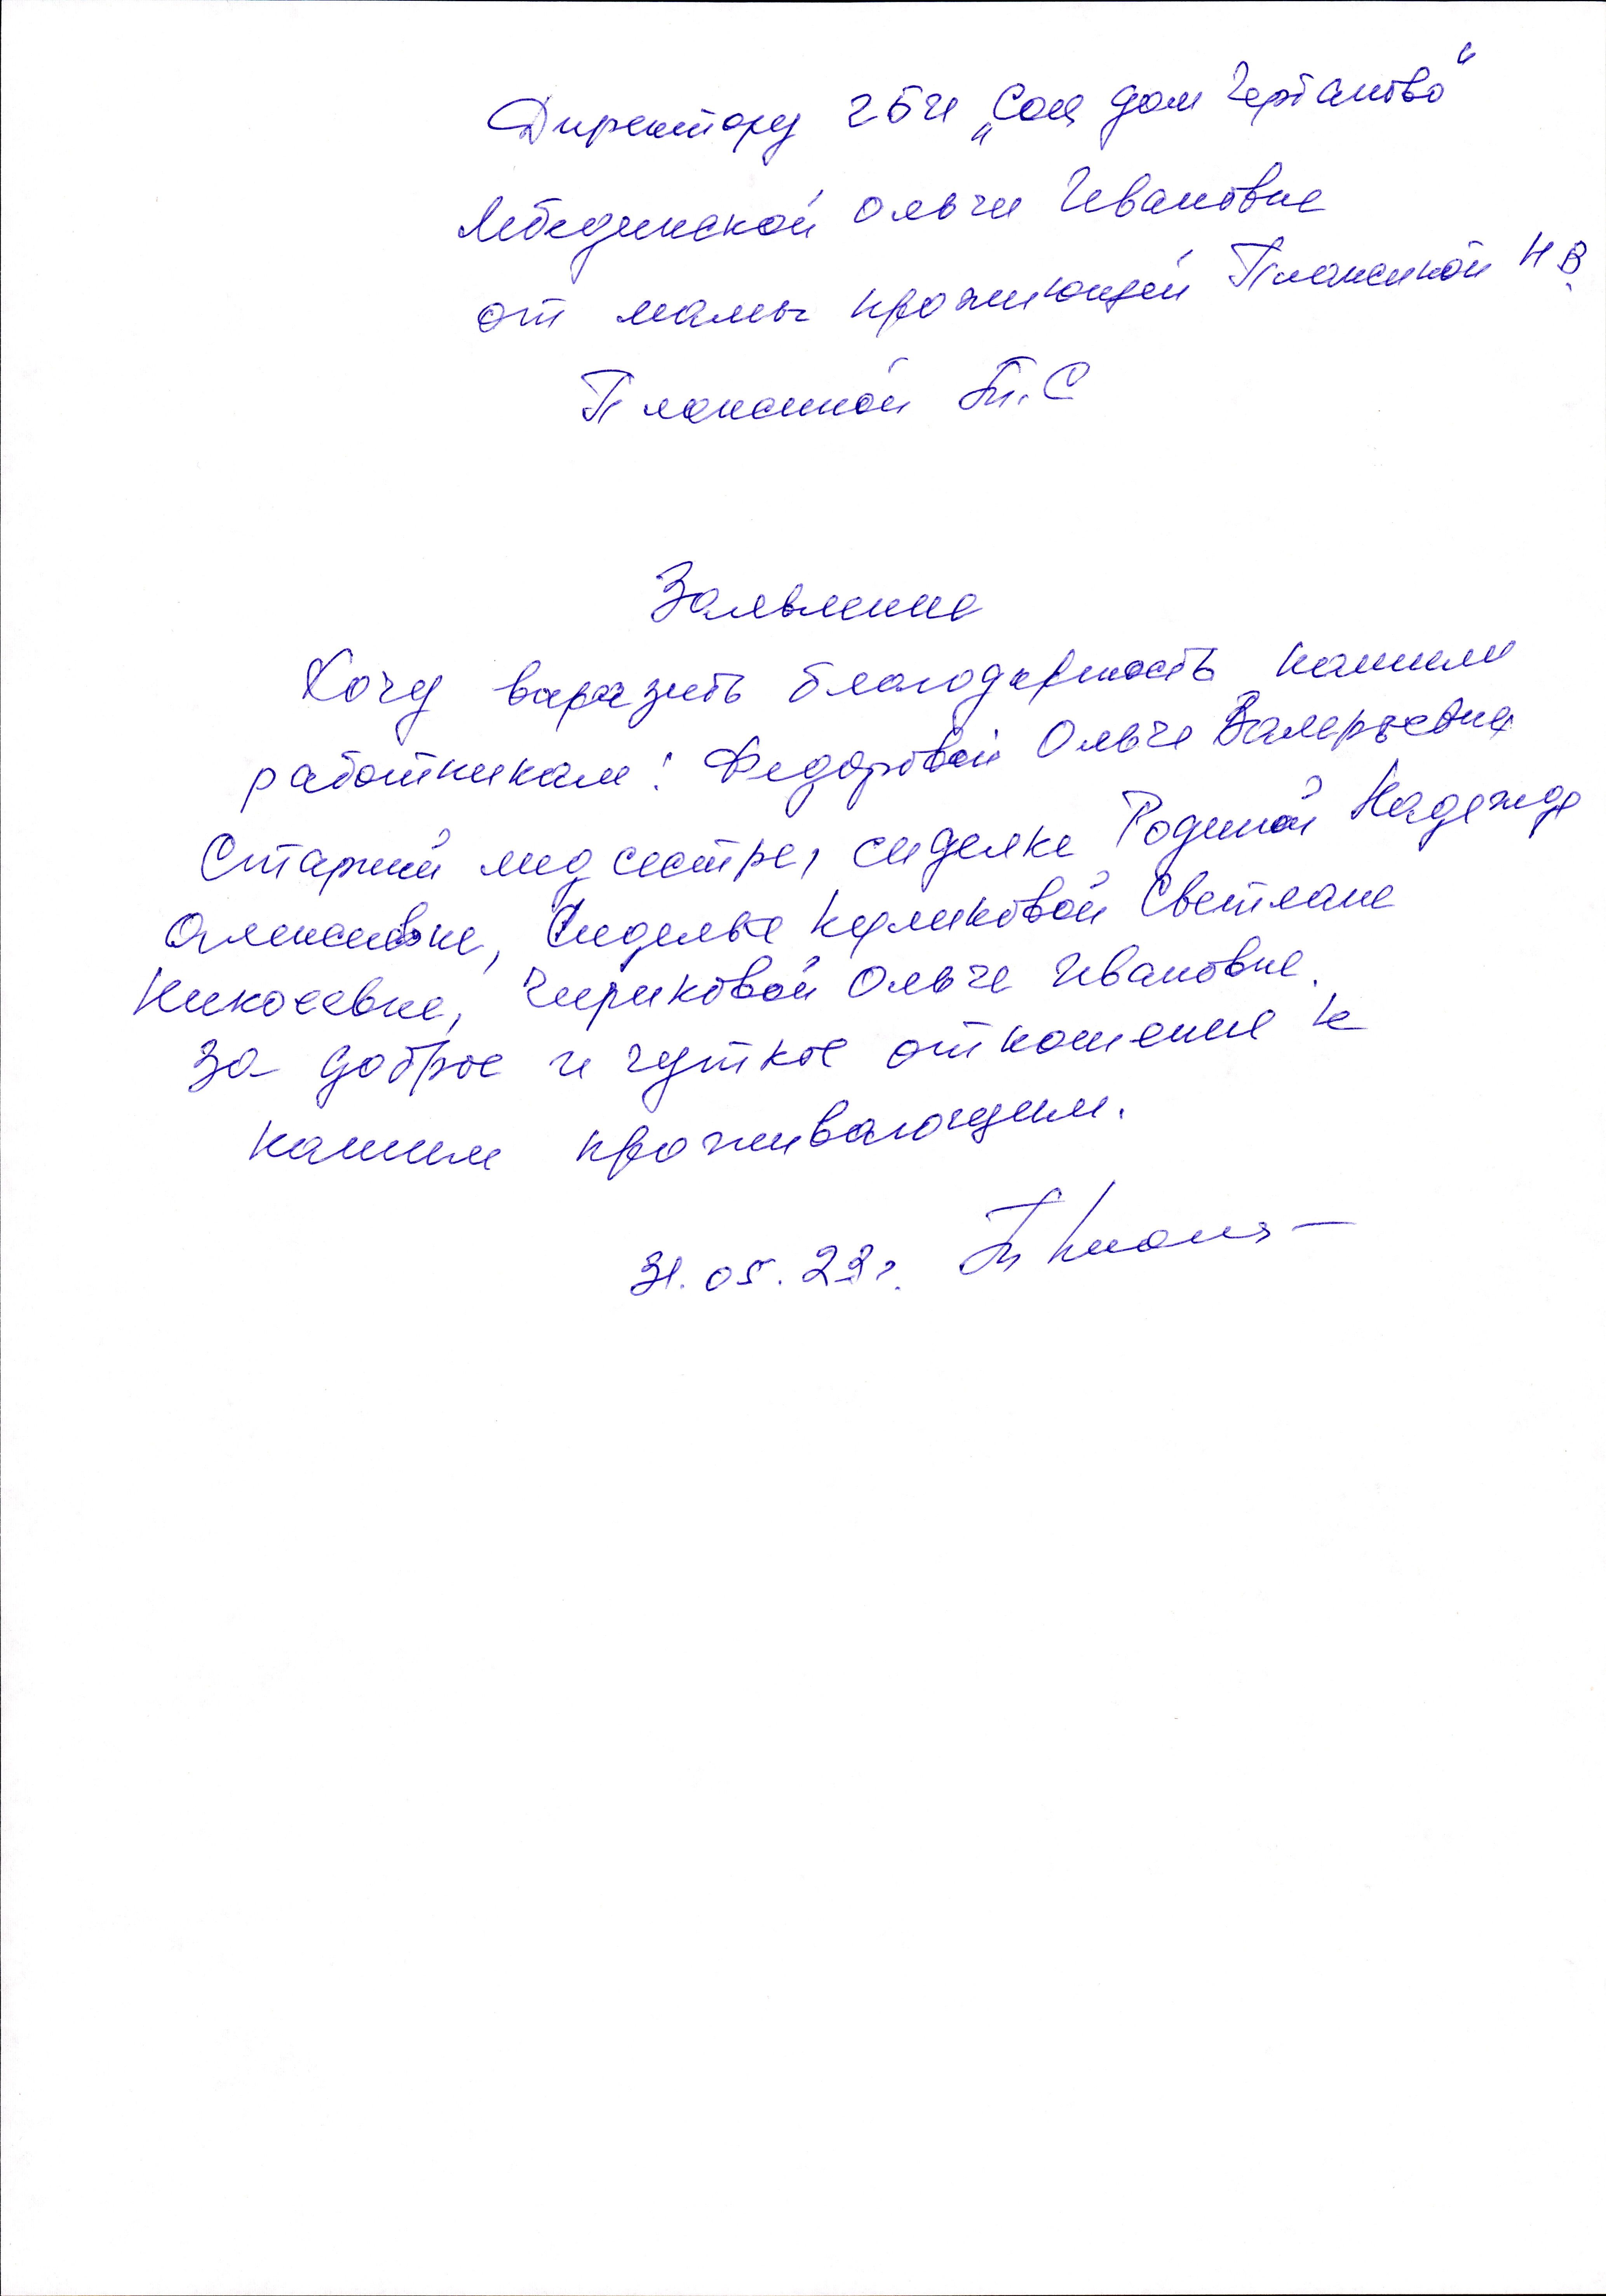 Директору ГБУ „Соц дом Чертаново“
Лебединской Ольги Ивановне
от мамы прожиющей Плаксиной Н В.
Плаксиной Т. С
Заявление
Хочу выразить благодарность нашим
работникам: Федоровой Ольге Валерьевне
Старшей мед сестре, сиделке Родиной Надежде
Алексеевне, Сиделке Куликовой Светлане
Чириковой Ольге Ивановне.
За доброе и чуткое отношение к
нашим проживающим.
31.05.23г.